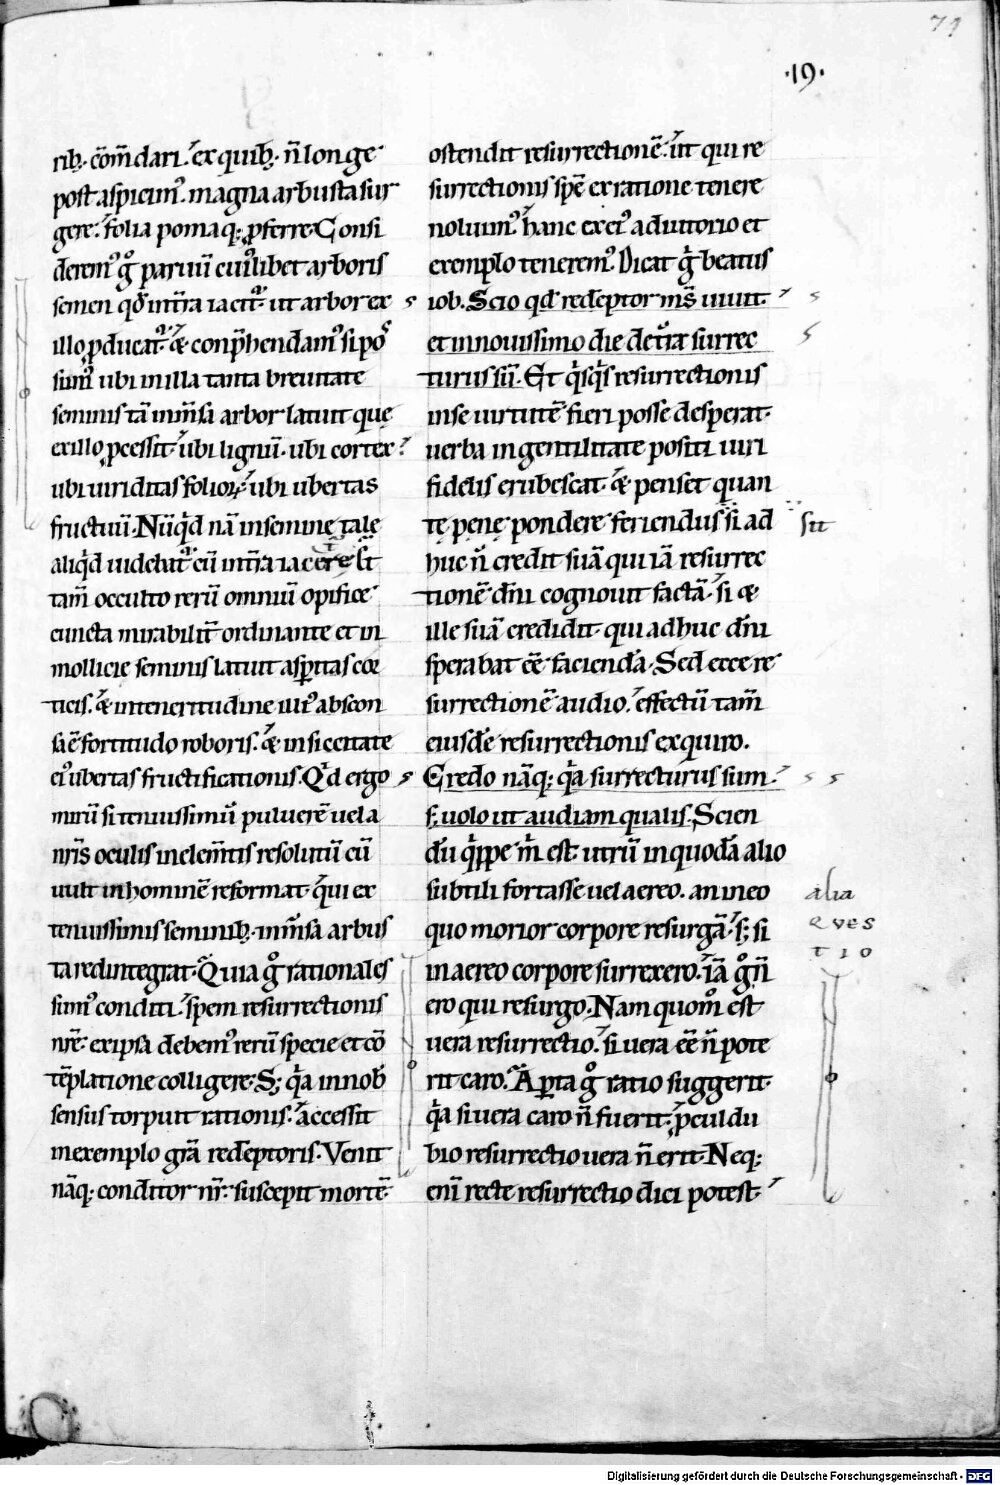 71
·19·
rib; cōm̄dari. ex quib; n̄ longe
post aspicim᷒. magna arbusta sur
gere. folia pomaq; ꝓferre. Consi
derem᷒ gͦ paruū cui᷒libet arboris
semen qd̄ int̄ra iacit᷑. ut arbor ex
illo ꝓducat᷑. & conp̄hendam᷒ si pos
sum᷒ ubi in illa tanta breuitate
seminis tā inm̄sa arbor latuit quę
ex illo ꝓcessit. ubi lignū. ubi cortex.
ubi uiriditas folioꝝ. ubi ubertas
fructuū. Nūqͥd nā in semine tale
aliqͥd uidebat᷑ cū int̄ra iacere s̄t
tam̄ occulto rerū omniū opifice
cuncta mirabilit̄ ordinante et in
mollicie seminis latuit asꝑitas cor
ticis. & in teneritudine illi᷒ abscon
sa ē fortitudo roboris. & in siccitate
ei᷒ ubertas fructificationis. Qͥd ergo
mirū si tenuissimū puluerē uel a
nr̄is oculis in elem̄tis resolutū cū
uult in hominē reformat. qͥ ex
tenuissimis seminib; inm̄sa arbus
ta redintegrat. Quia gͦ rationales
sum᷒ conditi. spem resurrectionis
nrē. ex ipsa debem᷒ rerū specie et cō
tēplatione colligere. S; qͥa in nob̄
sensus torpuit rationis. accessit
in exemplo grā redēptoris. Venit
nāq; conditor nr̄. suscepit mortē.
ostendit resurrectionē. ut qui re
surrectionis spē ex ratione tenere
noluim᷒. hanc ex ei᷒ adiutorio et
exemplo tenerem᷒. Dicat gͦ beatus
iob. Scio qd̄ redēptor ms̄ uiuit.
et in nouissimo die de tr̄a surrec
turus sū. Et qͥsqͥs resurrectionis
in se uirtutē fieri posse desperat.
uerba in gentilitate positi uiri
fidelis erubescat. & penset quan
tę pęnę pondere feriendus si ad
huc n̄ credit suā qui iā resurrec
tionē dn̄i cognouit factā. si &
ille suā credidit. qui adhuc dn̄i
sperabat eē faciendā. Sed ecce re
surrectionē audio. effectū tam̄
eiusdē resurrectionis exquiro.
Credo nāq; qͥa surrecturus sum.
s; uolo ut audiam qualis. Scien
dū qͥppe m̄ est. utrū in quodā alio
subtili fortasse uel aereo. an in eo
quo morior corpore resurgā. s; si
in aereo corpore surrexero. iā gͦ n̄
ero qui resurgo. Nam quom͂o est
uera resurrectio. si uera eē n̄ pote
rit caro. Aꝑta gͦ ratio suggerit.
qͥa si uera caro n̄ fuerit. ꝓculdu
bio resurrectio uera n̄ erit. Neq;
enī recte resurrectio dici potest.
sit
alia
QVES
TIO
Digitalisierung gefördert durch die Deutsche Forschungsgemeinschaft - DFG